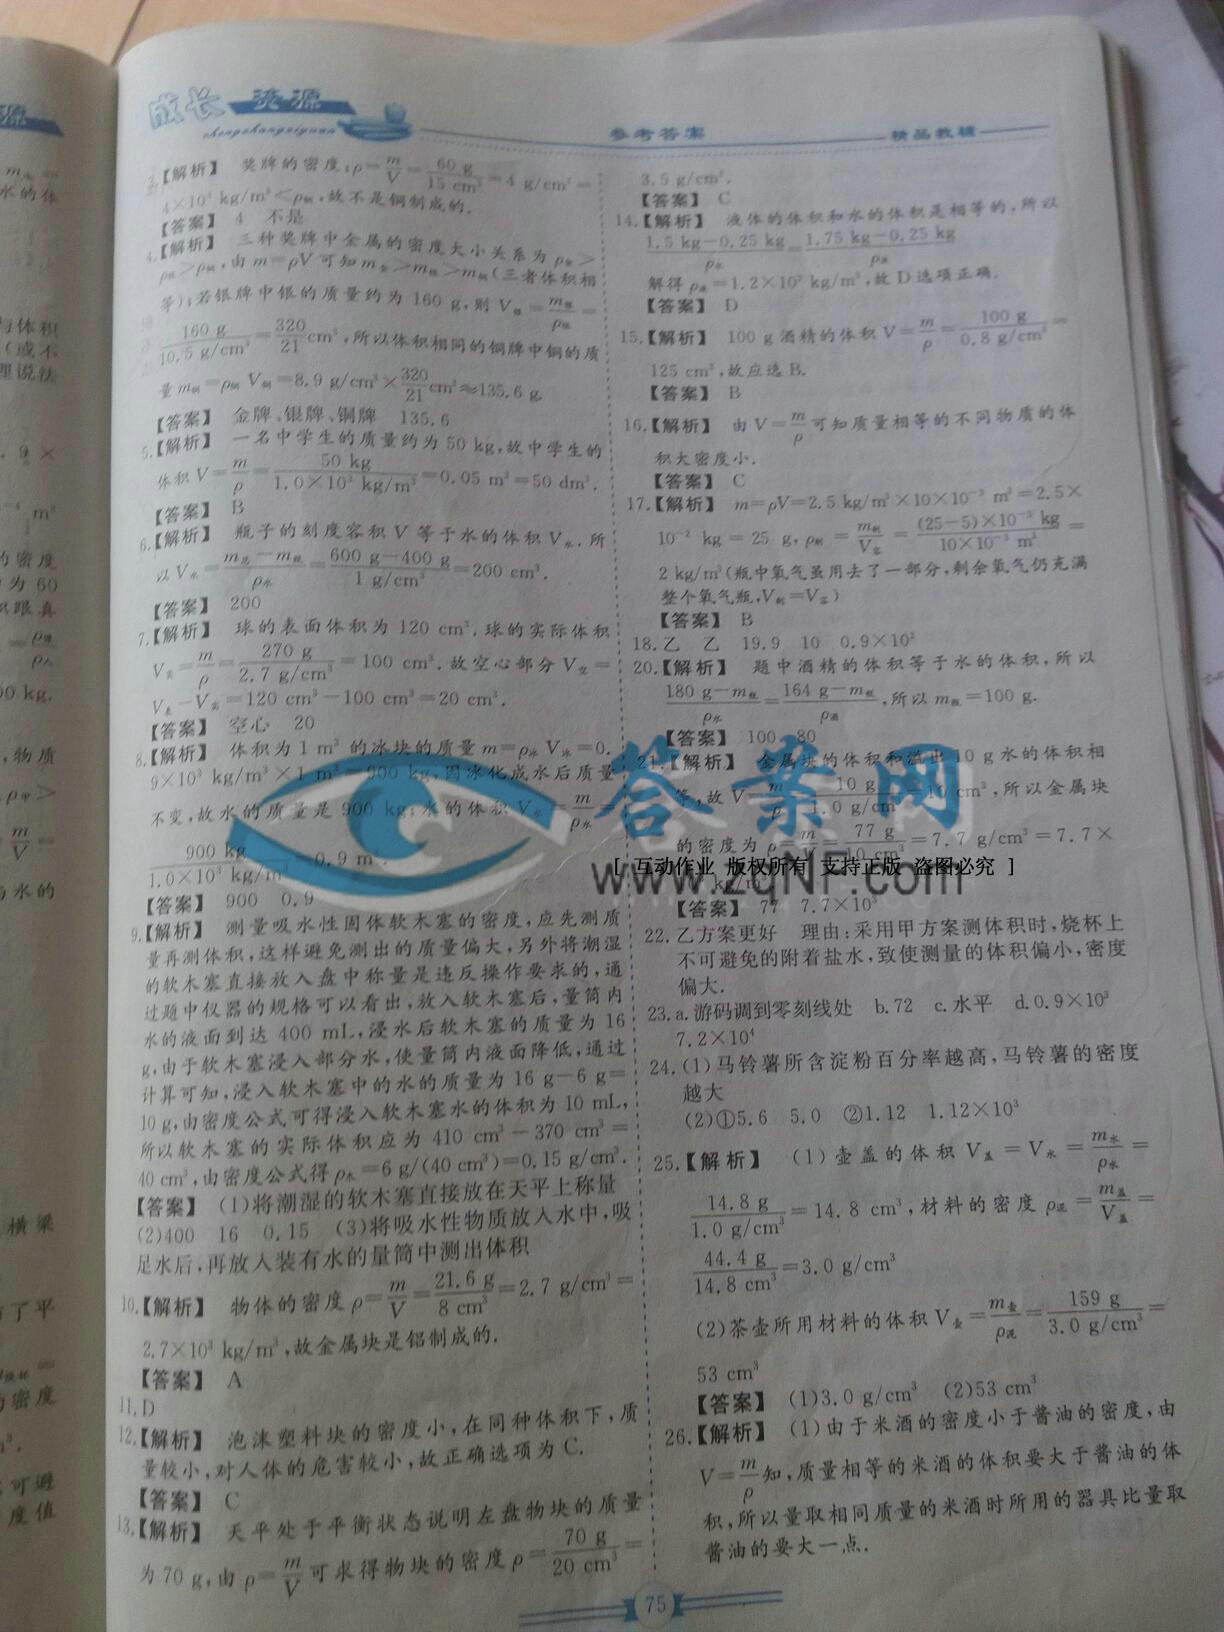 成长 资源
chengzhangziyuan
参考答案
精品教辅
3.【解析】 奖牌的密度:ρ=m/V=60 g/15 cm³=4 g/cm³=
4×10³ kg/m³<ρ铜,故不是铜制成的.
【答案】 4 不是
4.【解析】 三种奖牌中金属的密度大小关系为 ρ金>
ρ银>ρ铜,由 m=ρV 可知 m金>m银>m铜(三者体积相
等);若银牌中银的质量约为 160 g,则 V银=m银/ρ银=
160 g/10.5 g/cm³=320/21 cm³,所以体积相同的铜牌中铜的质
量 m铜=ρ铜 V铜=8.9 g/cm³×320/21 cm³≈135.6 g.
【答案】 金牌、银牌、铜牌 135.6
5.【解析】 一名中学生的质量约为 50 kg,故中学生的
体积 V=m/ρ=50 kg/1.0×10³ kg/m³=0.05 m³=50 dm³.
【答案】 B
6.【解析】 瓶子的刻度容积 V 等于水的体积 V水.所
以 V水=m总-m瓶/ρ水=600 g-400 g/1 g/cm³=200 cm³.
【答案】 200
7.【解析】 球的表面体积为 120 cm³.球的实际体积
V实=m/ρ=270 g/2.7 g/cm³=100 cm³.故空心部分 V空=
V表-V实=120 cm³-100 cm³=20 cm³.
【答案】 空心 20
8.【解析】 体积为 1 m³ 的冰块的质量 m=ρ冰 V冰=0.
9×10³ kg/m³×1 m³=900 kg,因冰化成水后质量
不变,故水的质量是 900 kg;水的体积 V水=m/ρ水=
900 kg/1.0×10³ kg/m³=0.9 m³.
【答案】 900 0.9
9.【解析】 测量吸水性固体软木塞的密度,应先测质
量再测体积,这样避免测出的质量偏大,另外将潮湿
的软木塞直接放入盘中称量是违反操作要求的,通
过题中仪器的规格可以看出,放入软木塞后,量筒内
水的液面到达 400 mL,浸水后软木塞的质量为 16
g,由于软木塞浸入部分水,使量筒内液面降低,通过
计算可知,浸入软木塞中的水的质量为 16 g-6 g=
10 g,由密度公式可得浸入软木塞水的体积为 10 mL,
所以软木塞的实际体积应为 410 cm³-370 cm³=
40 cm³,由密度公式得 ρ木=6 g/(40 cm³)=0.15 g/cm³.
【答案】 (1)将潮湿的软木塞直接放在天平上称量
(2)400 16 0.15 (3)将吸水性物质放入水中,吸
足水后,再放入装有水的量筒中测出体积
10.【解析】 物体的密度 ρ=m/V=21.6 g/8 cm³=2.7 g/cm³=
2.7×10³ kg/m³,故金属块是铝制成的.
【答案】 A
11.D
12.【解析】 泡沫塑料块的密度小,在同种体积下,质
量较小,对人体的危害较小,故正确选项为 C.
【答案】 C
13.【解析】 天平处于平衡状态说明左盘物块的质量
为 70 g,由 ρ=m/V 可求得物块的密度 ρ=70 g/20 cm³=
3.5 g/cm³.
【答案】 C
14.【解析】 液体的体积和水的体积是相等的,所以
1.5 kg-0.25 kg/ρ水=1.75 kg-0.25 kg/ρ液
解得 ρ液=1.2×10³ kg/m³,故 D 选项正确.
【答案】 D
15.【解析】 100 g 酒精的体积 V=m/ρ=100 g/0.8 g/cm³=
125 cm³,故应选 B.
【答案】 B
16.【解析】 由 V=m/ρ 可知质量相等的不同物质的体
积大密度小.
【答案】 C
17.【解析】 m=ρV=2.5 kg/m³×10×10⁻³ m³=2.5×
10⁻² kg=25 g,ρ剩=m剩/V容=(25-5)×10⁻³ kg/10×10⁻³ m³=
2 kg/m³(瓶中氧气虽用去了一部分,剩余氧气仍充满
整个氧气瓶,V剩=V容)
【答案】 B
18.乙 乙 19.9 10 0.9×10³
20.【解析】 题中酒精的体积等于水的体积,所以
180 g-m瓶/ρ水=164 g-m瓶/ρ酒,所以 m瓶=100 g.
【答案】 100 80
21.【解析】 金属块的体积和溢出 10 g 水的体积相
等,故 V=m/ρ=10 g/1.0 g/cm³=10 cm³,所以金属块
的密度为 ρ=m/V=77 g/10 cm³=7.7 g/cm³=7.7×
kg/m³
【答案】 77 7.7×10³
22.乙方案更好 理由:采用甲方案测体积时,烧杯上
不可避免的附着盐水,致使测量的体积偏小,密度
偏大.
23.a.游码调到零刻线处 b.72 c.水平 d.0.9×10³
7.2×10⁴
24.(1)马铃薯所含淀粉百分率越高,马铃薯的密度
越大
(2)①5.6 5.0 ②1.12 1.12×10³
25.【解析】 (1)壶盖的体积 V盖=V水=m水/ρ水=
14.8 g/1.0 g/cm³=14.8 cm³,材料的密度 ρ泥=m盖/V盖=
44.4 g/14.8 cm³=3.0 g/cm³
(2)茶壶所用材料的体积 V壶=m壶/ρ泥=159 g/3.0 g/cm³=
53 cm³
【答案】 (1)3.0 g/cm³ (2)53 cm³
26.【解析】 (1)由于米酒的密度小于酱油的密度,由
V=m/ρ知,质量相等的米酒的体积要大于酱油的体
积,所以量取相同质量的米酒时所用的器具比量取
酱油的要大一点.
75
答案网
www.zqNF.com
[ 互动作业 版权所有 支持正版 盗图必究 ]